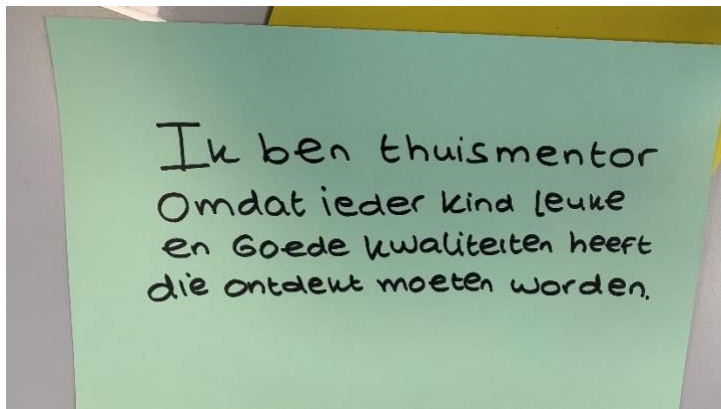 Ik ben thuismentor
Omdat ieder kind leuke
en Goede kwaliteiten heeft
die ontdekt moeten worden.